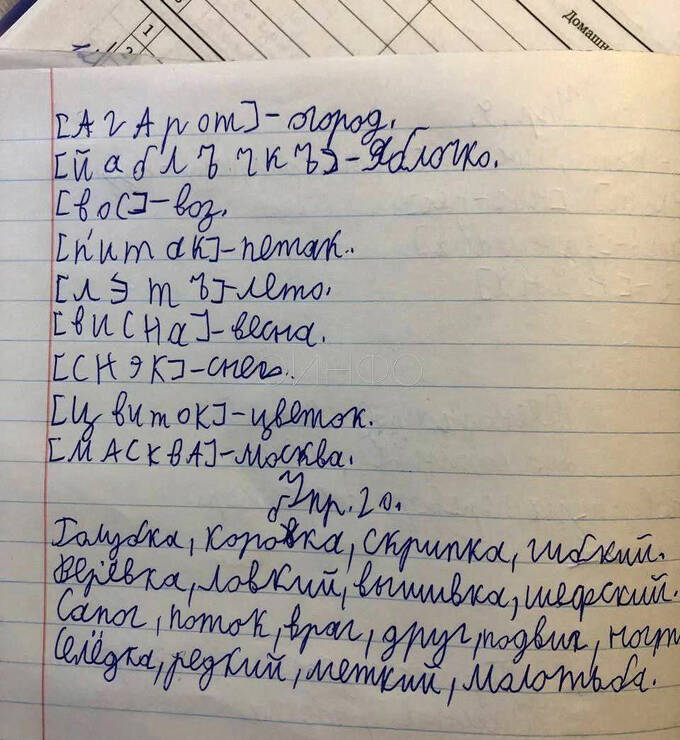 1
2
Домашн
[АгАрот]-огород.
[йаблъчкъ]-Яблочко.
[вос]-воз.
[п'итак]-петак.
[лэтъ]-лето.
[висна]-весна.
[снэк]-снег.
[цвиток]-цветок.
[МАСКВА]-Москва.
Упр. 20.
Голубка, коровка, скрипка, гибкий.
Верёвка, ловкий, вышивка, шефский.
Сапог, поток, враг, друг, подвиг,
Селёдка, редкий, меткий, малотьба.